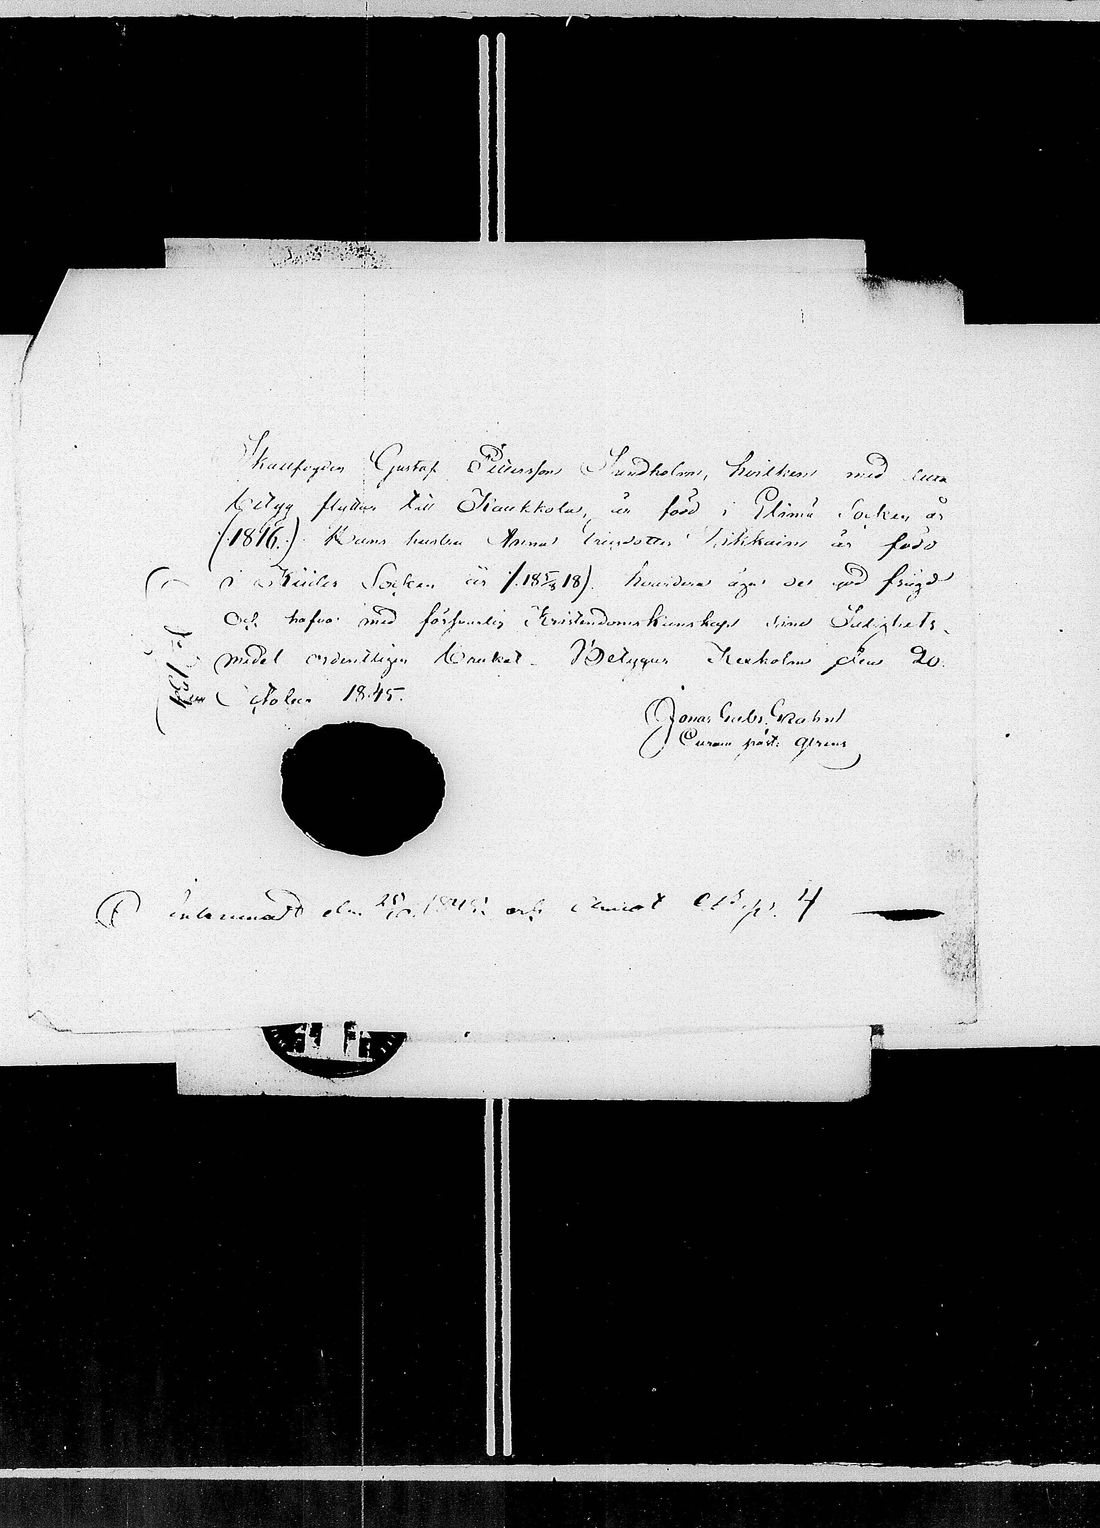 Skallfogden Gustaf Pettersson Sundholm, hvilken med detta
betyg flyttar till Kaukkola, är född i Elimä Socken år
(1816.) Hans hustru Anna Tihkain är född
i Socken år (18 5/8 18). hvardera äga det god frägd
och hafva med försvarlig Kristendomskunskap sine Salighets-
medel ordentligen brukat. Betygar Kexholm den 20
October 1845.
Jonas Grahn
Curam past: gerens
Inlemnadt den 1845 och 4